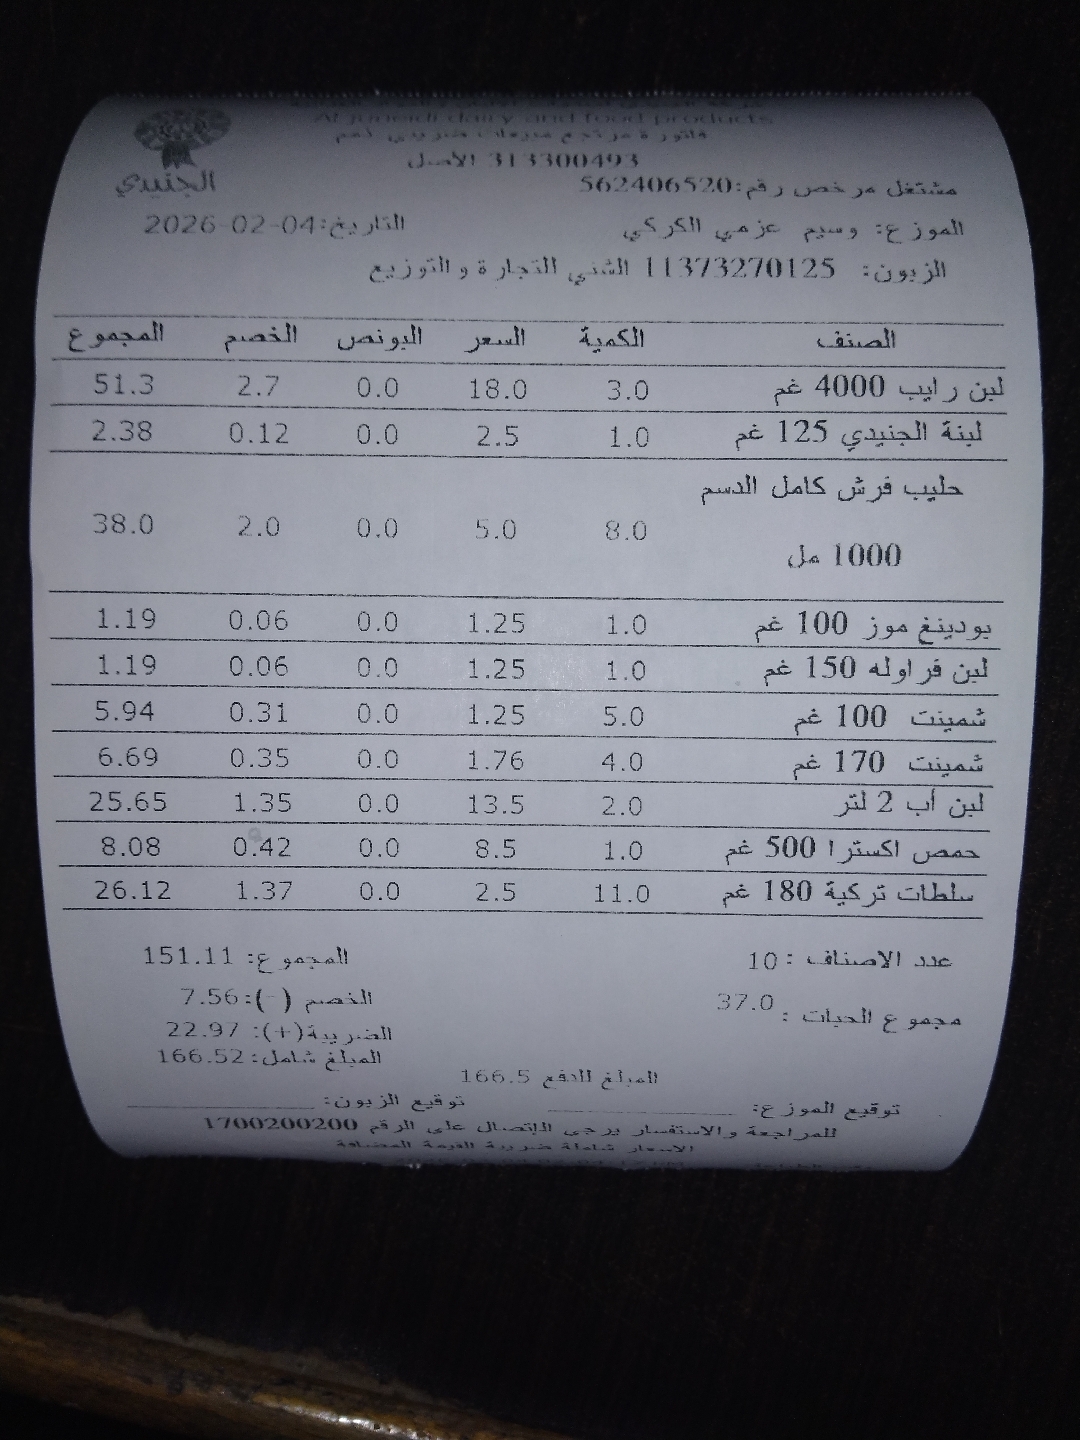 Al juneidi dairy and food products
فاتورة مرتجع مبيعات ضريبي لهم
313300493 الأصل
الجنيدي
مشتغل مرخص رقم:562406520
الموزع: وسيم عزمي الكركي التاريخ:2026-02-04
الزبون: 11373270125 الشني التجارة والتوزيع
الصنف الكمية السعر البونص الخصم المجموع
لبن رايب 4000 غم 3.0 18.0 0.0 2.7 51.3
لبنة الجنيدي 125 غم 1.0 2.5 0.0 0.12 2.38
حليب فرش كامل الدسم
1000 مل 8.0 5.0 0.0 2.0 38.0
بودينغ موز 100 غم 1.0 1.25 0.0 0.06 1.19
لبن فراوله 150 غم 1.0 1.25 0.0 0.06 1.19
شمينت 100 غم 5.0 1.25 0.0 0.31 5.94
شمينت 170 غم 4.0 1.76 0.0 0.35 6.69
لبن أب 2 لتر 2.0 13.5 0.0 1.35 25.65
حمص اكسترا 500 غم 1.0 8.5 0.0 0.42 8.08
سلطات تركية 180 غم 11.0 2.5 0.0 1.37 26.12
عدد الاصناف : 10 المجموع: 151.11
مجموع الحبات : 37.0 الخصم (-):7.56
الضريبة(+): 22.97
المبلغ شامل:166.52
المبلغ للدفع 166.5
توقيع الموزع: توقيع الزبون:
للمراجعة والاستفسار يرجى الإتصال على الرقم 1700200200
الاسعار شاملة ضريبة القيمة المضافة